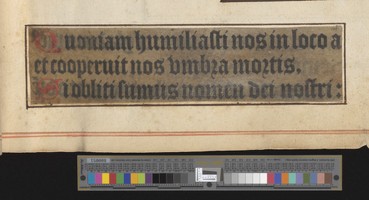 Quoniam humiliasti nos in loco a
et cooperuit nos vmbra mortis.
Si obliti sumus nomen dei nostri: